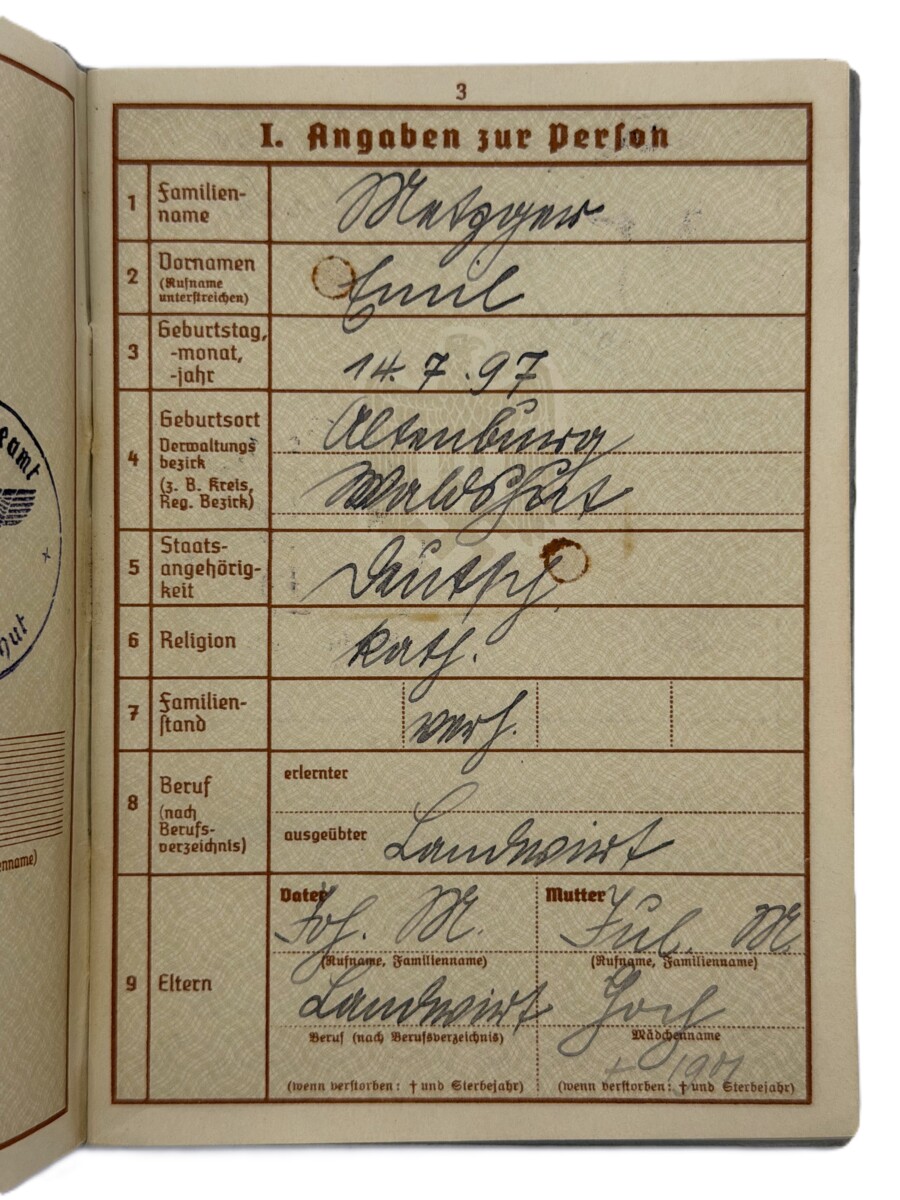 3
I. Angaben zur Person
1 Familien-
name
Metzger
2 Vornamen
(Rufname
unterstreichen)
Emil
3 Geburtstag,
-monat,
-jahr
14. 7. 97
4 Geburtsort
Verwaltungs
bezirk
(z. B. Kreis,
Reg. Bezirk)
Altenburg
Waldshut
5 Staats-
angehörig-
keit
Deutsch
6 Religion
kath.
7 Familien-
stand
verh.
8 Beruf
(nach
Berufs-
verzeichnis)
erlernter
ausgeübter Landwirt
9 Eltern
Vater
Joh. M.
(Rufname, Familienname)
Landwirt
Beruf (nach Berufsverzeichnis)
(wenn verstorben: † und Sterbejahr)
Mutter
Jul. M.
(Rufname, Familienname)
Hoch
Mädchenname
† 1901
(wenn verstorben: † und Sterbejahr)